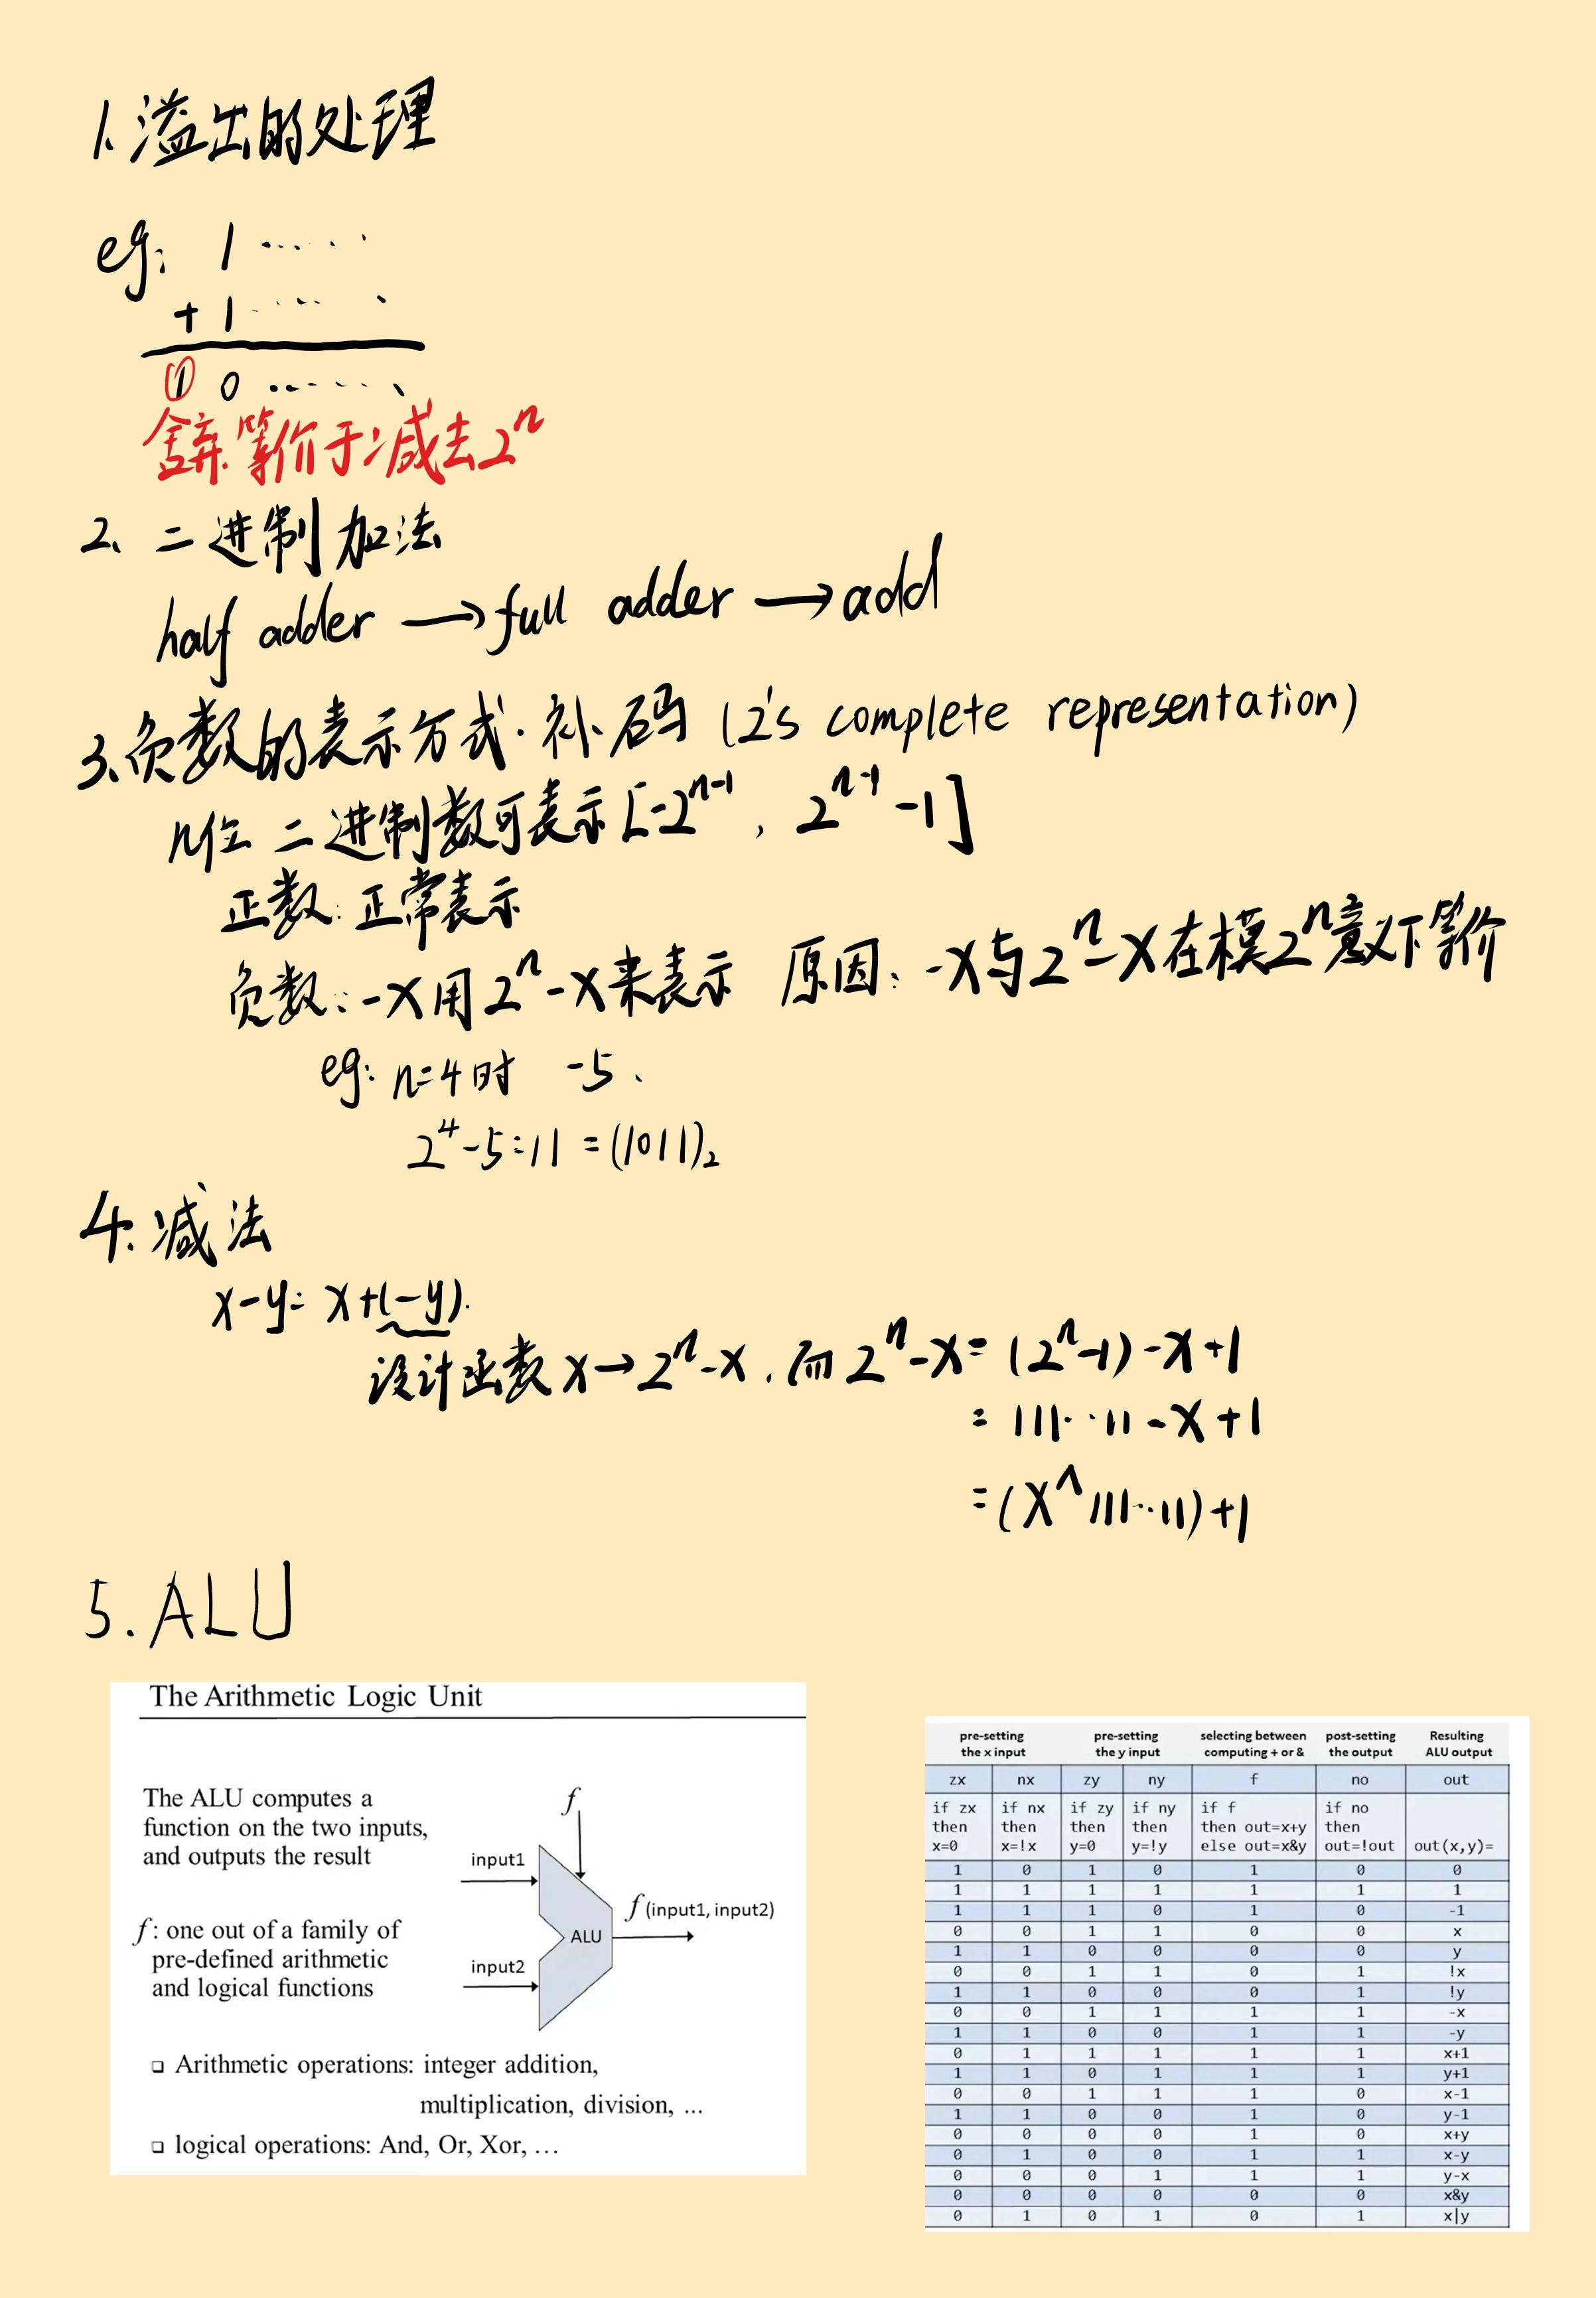 1.溢出的处理
eg: 1 ······
+ 1 ······
① 0 ······
舍弃.等价于减去2ⁿ
2、二进制加法
half adder → full adder → add
3、负数的表示方式·补码 (2's complete representation)
n位二进制数可表示[-2ⁿ⁻¹, 2ⁿ⁻¹-1]
正数:正常表示
负数:-x用2ⁿ-x来表示 原因:-x与2ⁿ-x在模2ⁿ意义下等价
eg: n=4时 -5.
2⁴-5=11=(1011)₂
4.减法
x-y= x+(-y).
设计函数 x→2ⁿ-x,而2ⁿ-x= (2ⁿ-1)-x+1
= 111··11-x+1
=(x^111··11)+1
5.ALU
The Arithmetic Logic Unit
The ALU computes a
function on the two inputs,
and outputs the result
f: one out of a family of
pre-defined arithmetic
and logical functions
f
input1
ALU
f (input1, input2)
input2
❑ Arithmetic operations: integer addition,
multiplication, division, ...
❑ logical operations: And, Or, Xor, …
pre-setting the x input pre-setting the y input selecting between computing + or & post-setting the output Resulting ALU output
zx nx zy ny f no out
if zx if nx if zy if ny if f if no
then then then then then out=x+y then
x=0 x=!x y=0 y=!y else out=x&y out=!out out(x,y)=
1 0 1 0 1 0 0
1 1 1 1 1 1 1
1 1 1 0 1 0 -1
0 0 1 1 0 0 x
1 1 0 0 0 0 y
0 0 1 1 0 1 !x
1 1 0 0 0 1 !y
0 0 1 1 1 1 -x
1 1 0 0 1 1 -y
0 1 1 1 1 1 x+1
1 1 0 1 1 1 y+1
0 0 1 1 1 0 x-1
1 1 0 0 1 0 y-1
0 0 0 0 1 0 x+y
0 1 0 0 1 1 x-y
0 0 0 1 1 1 y-x
0 0 0 0 0 0 x&y
0 1 0 1 0 1 x|y